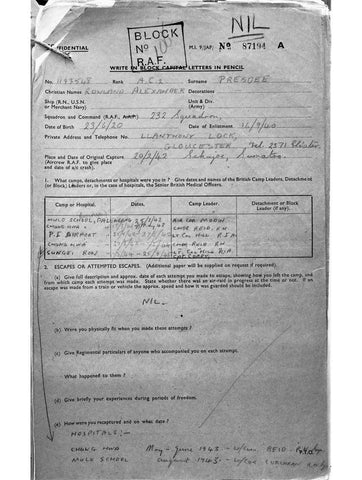 NIL
CONFIDENTIAL
BLOCK
No
R.A.F.
M.I. 9/JAP/ No 87194 A
WRITE IN BLOCK CAPITAL LETTERS IN PENCIL
No. Rank A.C.1 Surname PRESDEE
Christian Names ROWLAND ALEXANDER Decorations
Ship (R.N., U.S.N. or Merchant Navy) Unit & Div. (Army)
Squadron and Command (R.A.F., ) 232 Squadron,
Date of Birth 23/6/20 Date of Enlistment 16/9/40
Private Address and Telephone No. LLANTHONY LOCK,
GLOUCESTER, Tel 2371
Place and Date of Original Capture 20/2/42 Sumatra.
(Aircrew R.A.F. to give place and date of a/c crash).
1. What camps, detachments or hospitals were you in? Give dates and names of the British Camp Leaders, Detachment
(or Block) Leaders or, in the case of hospitals, the Senior British Medical Officers.
Camp or Hospital. (Dates). Camp Leader. Detachment or Block Leader (if any).
MULO SCHOOL, PALEMBANG
CHUNG HWA CMDR REID. RN
P.I AIRPORT
CHUNG HWA CMDR REID. RN
SUNGEI RON
2. ESCAPES OR ATTEMPTED ESCAPES. (Additional paper will be supplied on request if required).
(a) Give full description and approx. date of each attempt you made to escape, showing how you left the camp, and
from which camp each attempt was made. State whether there was an air-raid in progress at the time or not. If an
escape was made from a train or vehicle the approx. speed and how it was guarded should be included.
NIL.
(b) Were you physically fit when you made these attempts?
(c) Give Regimental particulars of anyone who accompanied you on each attempt.
What happened to them?
(d) Give briefly your experiences during periods of freedom.
(e) How were you recaptured and on what date?
HOSPITALS:-
CHUNG HWA May - June 1943 - REID
MULO SCHOOL August 1943 -